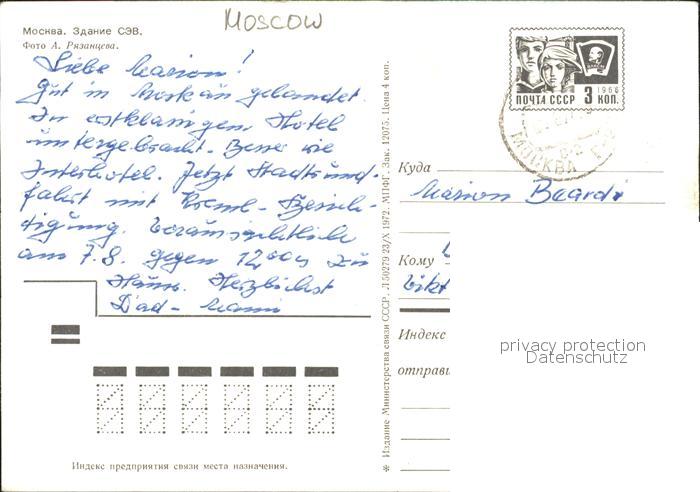 MOSCOW
Москва. Здание СЭВ.
Фото А. Рязанцева.
Liebe Marion!
Gut in Moskau gelandet.
In erstklassigem Hotel
untergebracht. Besser wie
Interhotel. Jetzt Stadtrund-
fahrt mit Kreml-Besich-
tigung. Voraussichtliche
am 7.8. gegen 12,00h zu
Hause. Herzlichst
Dad - Mami
Индекс предприятия связи места назначения.
✻ Издание Министерства связи СССР. Л 50279 23/X 1972. МПФГ. Зак. 12075. Цена 4 коп.
ПОЧТА СССР 3 КОП.
1966
МОСКВА
Куда
Marion
Кому
Vikt
Индекс
отправи
privacy protection
Datenschutz